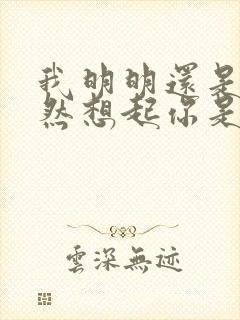 我明明還是
然想起你是
雲深無迹